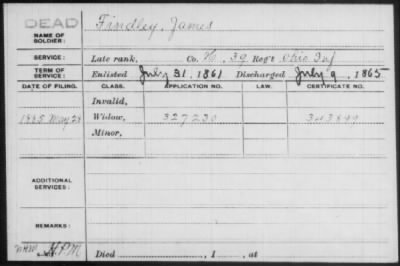 DEAD
NAME OF SOLDIER: Findley, James
SERVICE: Late rank, Co. K, 39 Reg't Ohio Inf
TERM OF SERVICE: Enlisted July 31, 1861 Discharged July 9, 1865
DATE OF FILING. CLASS. APPLICATION NO. LAW. CERTIFICATE NO.
Invalid,
1885 May 28 Widow, 327230 343899
Minor,
ADDITIONAL SERVICES:
REMARKS:
Died , 1 , at